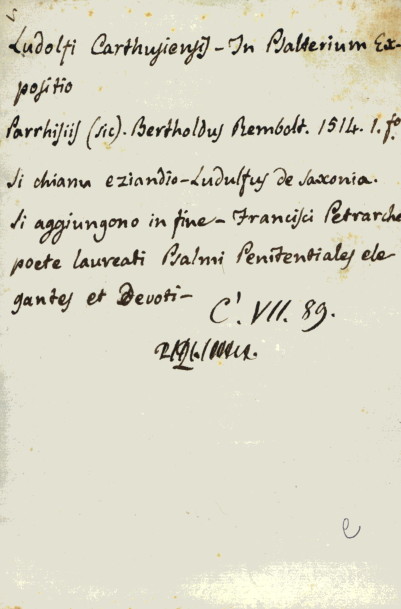 Ludolfi Carthusiensis - In Psalterium Ex-
positio
Parrhisiis (sic). Bertholdus Rembolt. 1514. 1. fo.
Si chiama eziandio - Ludulfus de Saxonia.
Si aggiungono in fine - Francisci Petrarche
poete laureati Psalmi Penitentiales ele
gantes et Devoti -
C'. VII. 89.
e